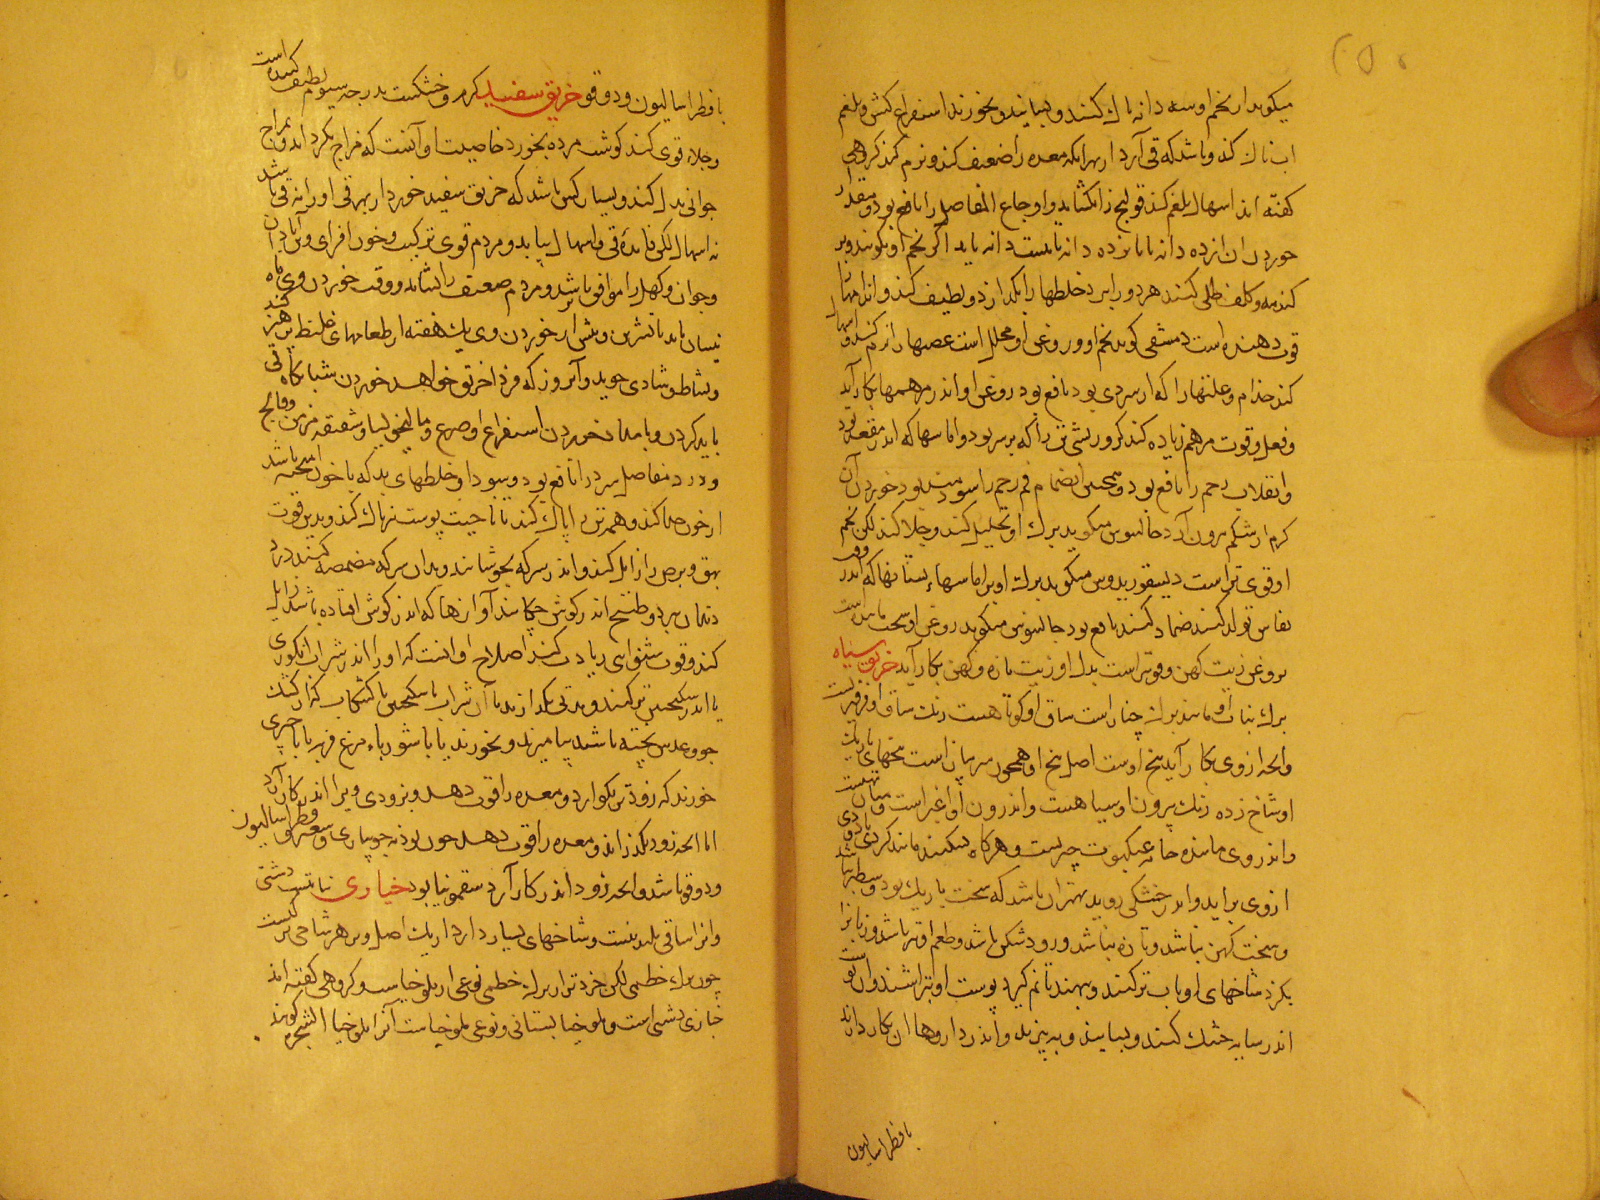 میکوید از تخم او سه دانه پاک کنند و بسایند و بخورند استفراغ کنش و بلغم
اب ناک کند و باشد که قی آرد از بهر آنکه معده را ضعیف کند و نرم کند کروهی
کفته اند اسهال بلغم کند قولنج را بکشاید و اوجاع المفاصل را نافع بود و مقدار
خوردن ان از ده دانه تا پانزده دانه تا بیست دانه باید اکر تخم او بکوبند و بر
کندمه و کلف طلی کنند هر دو را ببرد خلطها را بکدازد و لطیف کند و اندامها را
قوت دهنده است دمشقی کوید تخم او و روغن او محلل است عصبها را نرم کند و اسهال
کند جذام و علتها را که از سردی بود نافع بود روغن او اندر مرهمها بکار آید
و فعل و قوت مرهم زیاده کند کر و ریش تر را که بر سر بود و اماسها که اندر مقعد بود
و انقلاب رحم را نافع بود و همچنین انضمام فم رحم را سودمند بود خوردن آن
کرم از شکم برون آرد جالینوس میکوید برک او تحلیل کند و جلا کند لکن تخم
او قوی تر است دیسقوریدوس میکوید برک او بر اماسهاء پستانها که اندر وقت
نفاس تولد کنند ضماد کنند نافع بود جالینوس میکوید روغن او سخت ماننده است
بروغن زیت کهن و قویتر است بدل او زیت تازه و کهن بکار آید خربق سیاه
برک نبات او مانند برک چنار است ساق او کوتاهست رنک ساق او فرفیریست
و انچه از وی بکار آید بیخ اوست اصل بیخ او همچون سر پیاز است بیخهای باریک
او شاخ زده رنک بیرون او سیاهست و اندرون او اغبر است و میان تهیست
و اندر وی ماننده خانه عنکبوت چیزیست و هرکاه بشکنند مانند کردی باد دودی
از وی براید و اندر خشکی روید بهتر آن باشد که سخت باریک بود و سطبر نباشد
و سخت کهن نباشد و تازه نباشد و زود شکن باشد و طعم او تیز باشد و زبان را
بکزد شاخهای او باب تر کنند و بنهند تا نم کیرد پوست او بتراشند و ان پوست
اندر سایه خشک کنند و بسایند و ببیزند و اندر داروها ان بکار دارند
با فطراسالیون
با فطراسالیون و دوقو خربق سفید کرم و خشکست بدرجه سیوم لطیف کننده است
و جلاء قوی کند کوشت مرده بخورد خاصیت او آنست که مزاج بکرداند و مزاج
جوانی بدل کند و بسیار کس باشد که خربق سفید خورد از بهر قی او را نه قی باشد
نه اسهال لکن فایدهٔ قی و اسهال بیابد و مردم قوی ترکیب و خون افزای و تن آبادان
و جوان و کهل را موافق باشد و مردم ضعیف را نشاید و وقت خوردن وی ماه
نیسان باید یا تشرین و پیش از خوردن وی یک هفته از طعامهای غلیظ پرهیز کند
و نشاط و شادی جوید و آن روز که فردا خربق خواهد خوردن شبانکاه قی
باید کردن و بامداد خوردن استفراغ او صرع و مالیخولیا و شقیقه مزمن و فالج
و درد مفاصل سرد را نافع بود و سودا و خلطهای بد که با خون آمیخته باشد
از خون جدا کند و همه تن را پاک کند تا ناحیت پوست نیز پاک کند و بدین قوت
بهق و برص را زایل کند و اندر سرکه بجوشانند و بدان سرکه مضمضه کنند درد
دندان ببرد و طبیخ اندر کوش چکانند آوازها که اندر کوش افتاده باشد زایل
کند و قوت شنوای زیادت کند اصلاح او انست که او را اندر شراب انکوری
یا اندر سکنجبین تر کنند و مدتی بکذارند با آن شراب یا سکنجبین با کشکاب که از کشک
جو و عدس پخته باشند بیامیزند و بخورند یا با شورباء مرغ فربه یا با چیزی
خورند که زودتر بکوارد و معده را قوت دهد و بزودی ویرا اندر کار آرد
اما انچه زود بکذراند و معده را قوت دهد چون پودنه جویباری و سعتر و فطراسالیون
و دوقو باشد و انچه زود اندر کار آرد سقمونیا بود خبازی نباتیست دشتی
و انرا ساقی بلند نیست و شاخهای بسیار دارد از یک اصل و بر هر شاخی برکیست
چون برک خطمی لکن خردتر از برک خطمی نوعی از ملوخیاست و کروهی کفته اند
خبازی دشتی است و ملوخیا بستانی و نوعی ملوخیاست آنرا ملوخیا الشجره کویند